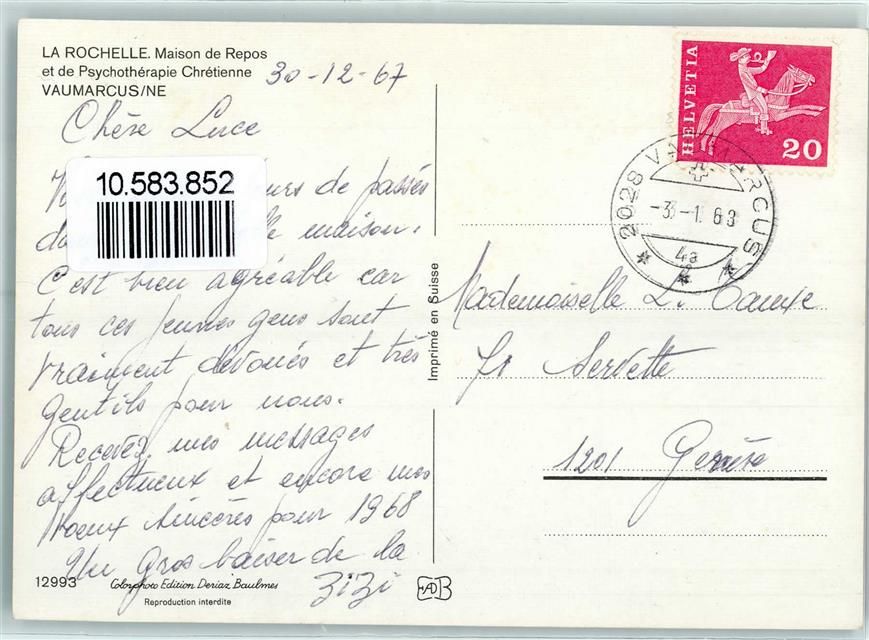 LA ROCHELLE. Maison de Repos
et de Psychothérapie Chrétienne
VAUMARCUS/NE
30-12-67
Chère Luce
10.583.852
jours de passés
maison.
C'est bien agréable car
tous ces jeunes gens sont
vraiment dévoués et très
gentils pour nous.
Recevez mes messages
affectueux et encore mes
voeux sincères pour 1968
Un gros baiser de la
Zizi
12993
Colorphoto Edition Deriaz, Baulmes
Reproduction interdite
Imprimé en Suisse
HELVETIA
20
2028 VAUMARCUS
-3.-1.68
4a
Mademoiselle L.
71 Servette
1201 Genève